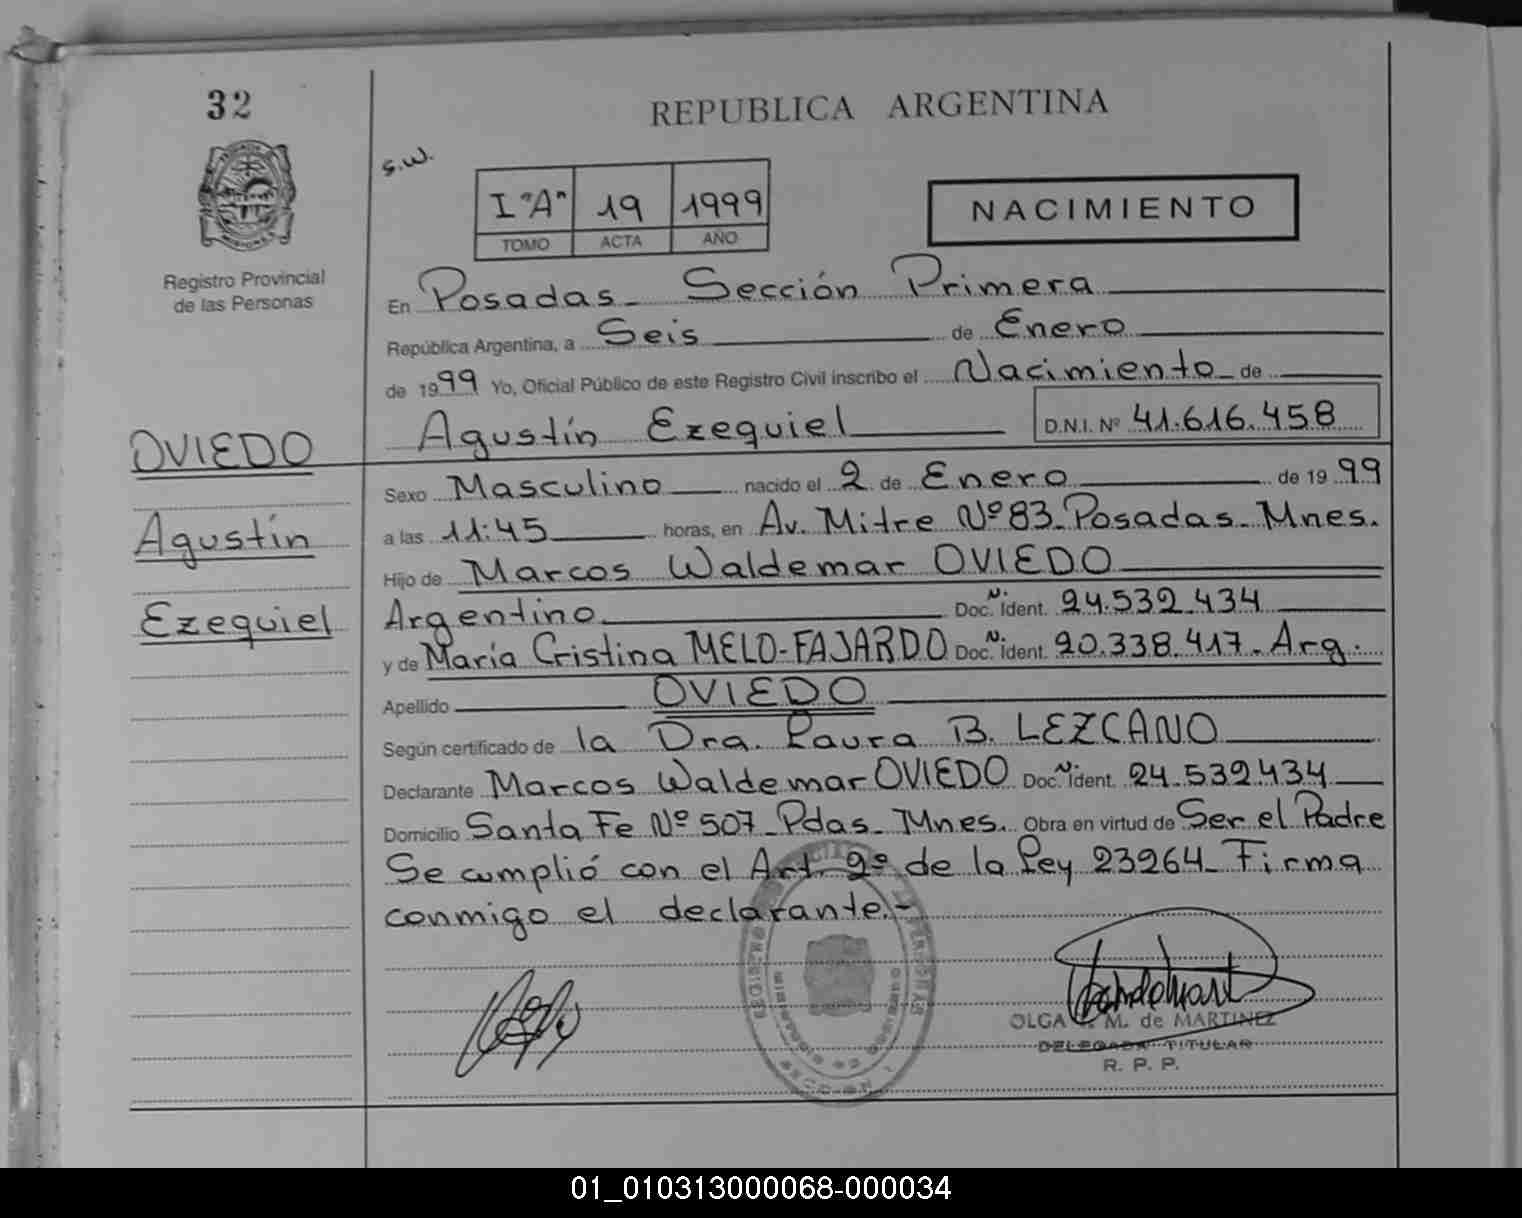 32
REPUBLICA ARGENTINA
S.W.
I "A" 19 1999
TOMO ACTA AÑO
NACIMIENTO
Registro Provincial
de las Personas
En Posadas - Sección Primera
República Argentina, a Seis de Enero
de 1999 Yo, Oficial Público de este Registro Civil inscribo el Nacimiento de
Agustín Ezequiel D.N.I. Nº 41.616.458
OVIEDO
Agustín
Ezequiel
Sexo Masculino nacido el 2 de Enero de 1999
a las 11:45 horas, en Av. Mitre Nº 83 - Posadas - Mnes.
Hijo de Marcos Waldemar OVIEDO
Argentino Doc. Nº Ident. 24.532.434
y de María Cristina MELO-FAJARDO Doc. Nº Ident. 20.338.417 - Arg.
Apellido OVIEDO
Según certificado de la Dra. Laura B. LEZCANO
Declarante Marcos Waldemar OVIEDO Doc. Nº Ident. 24.532.434
Domicilio Santa Fe Nº 507 - Pdas - Mnes. Obra en virtud de Ser el Padre
Se cumplió con el Art. 2º de la Ley 23264 - Firma
conmigo el declarante.-
OLGA M. de MARTINEZ
DELEGADA TITULAR
R. P. P.
01_010313000068-000034